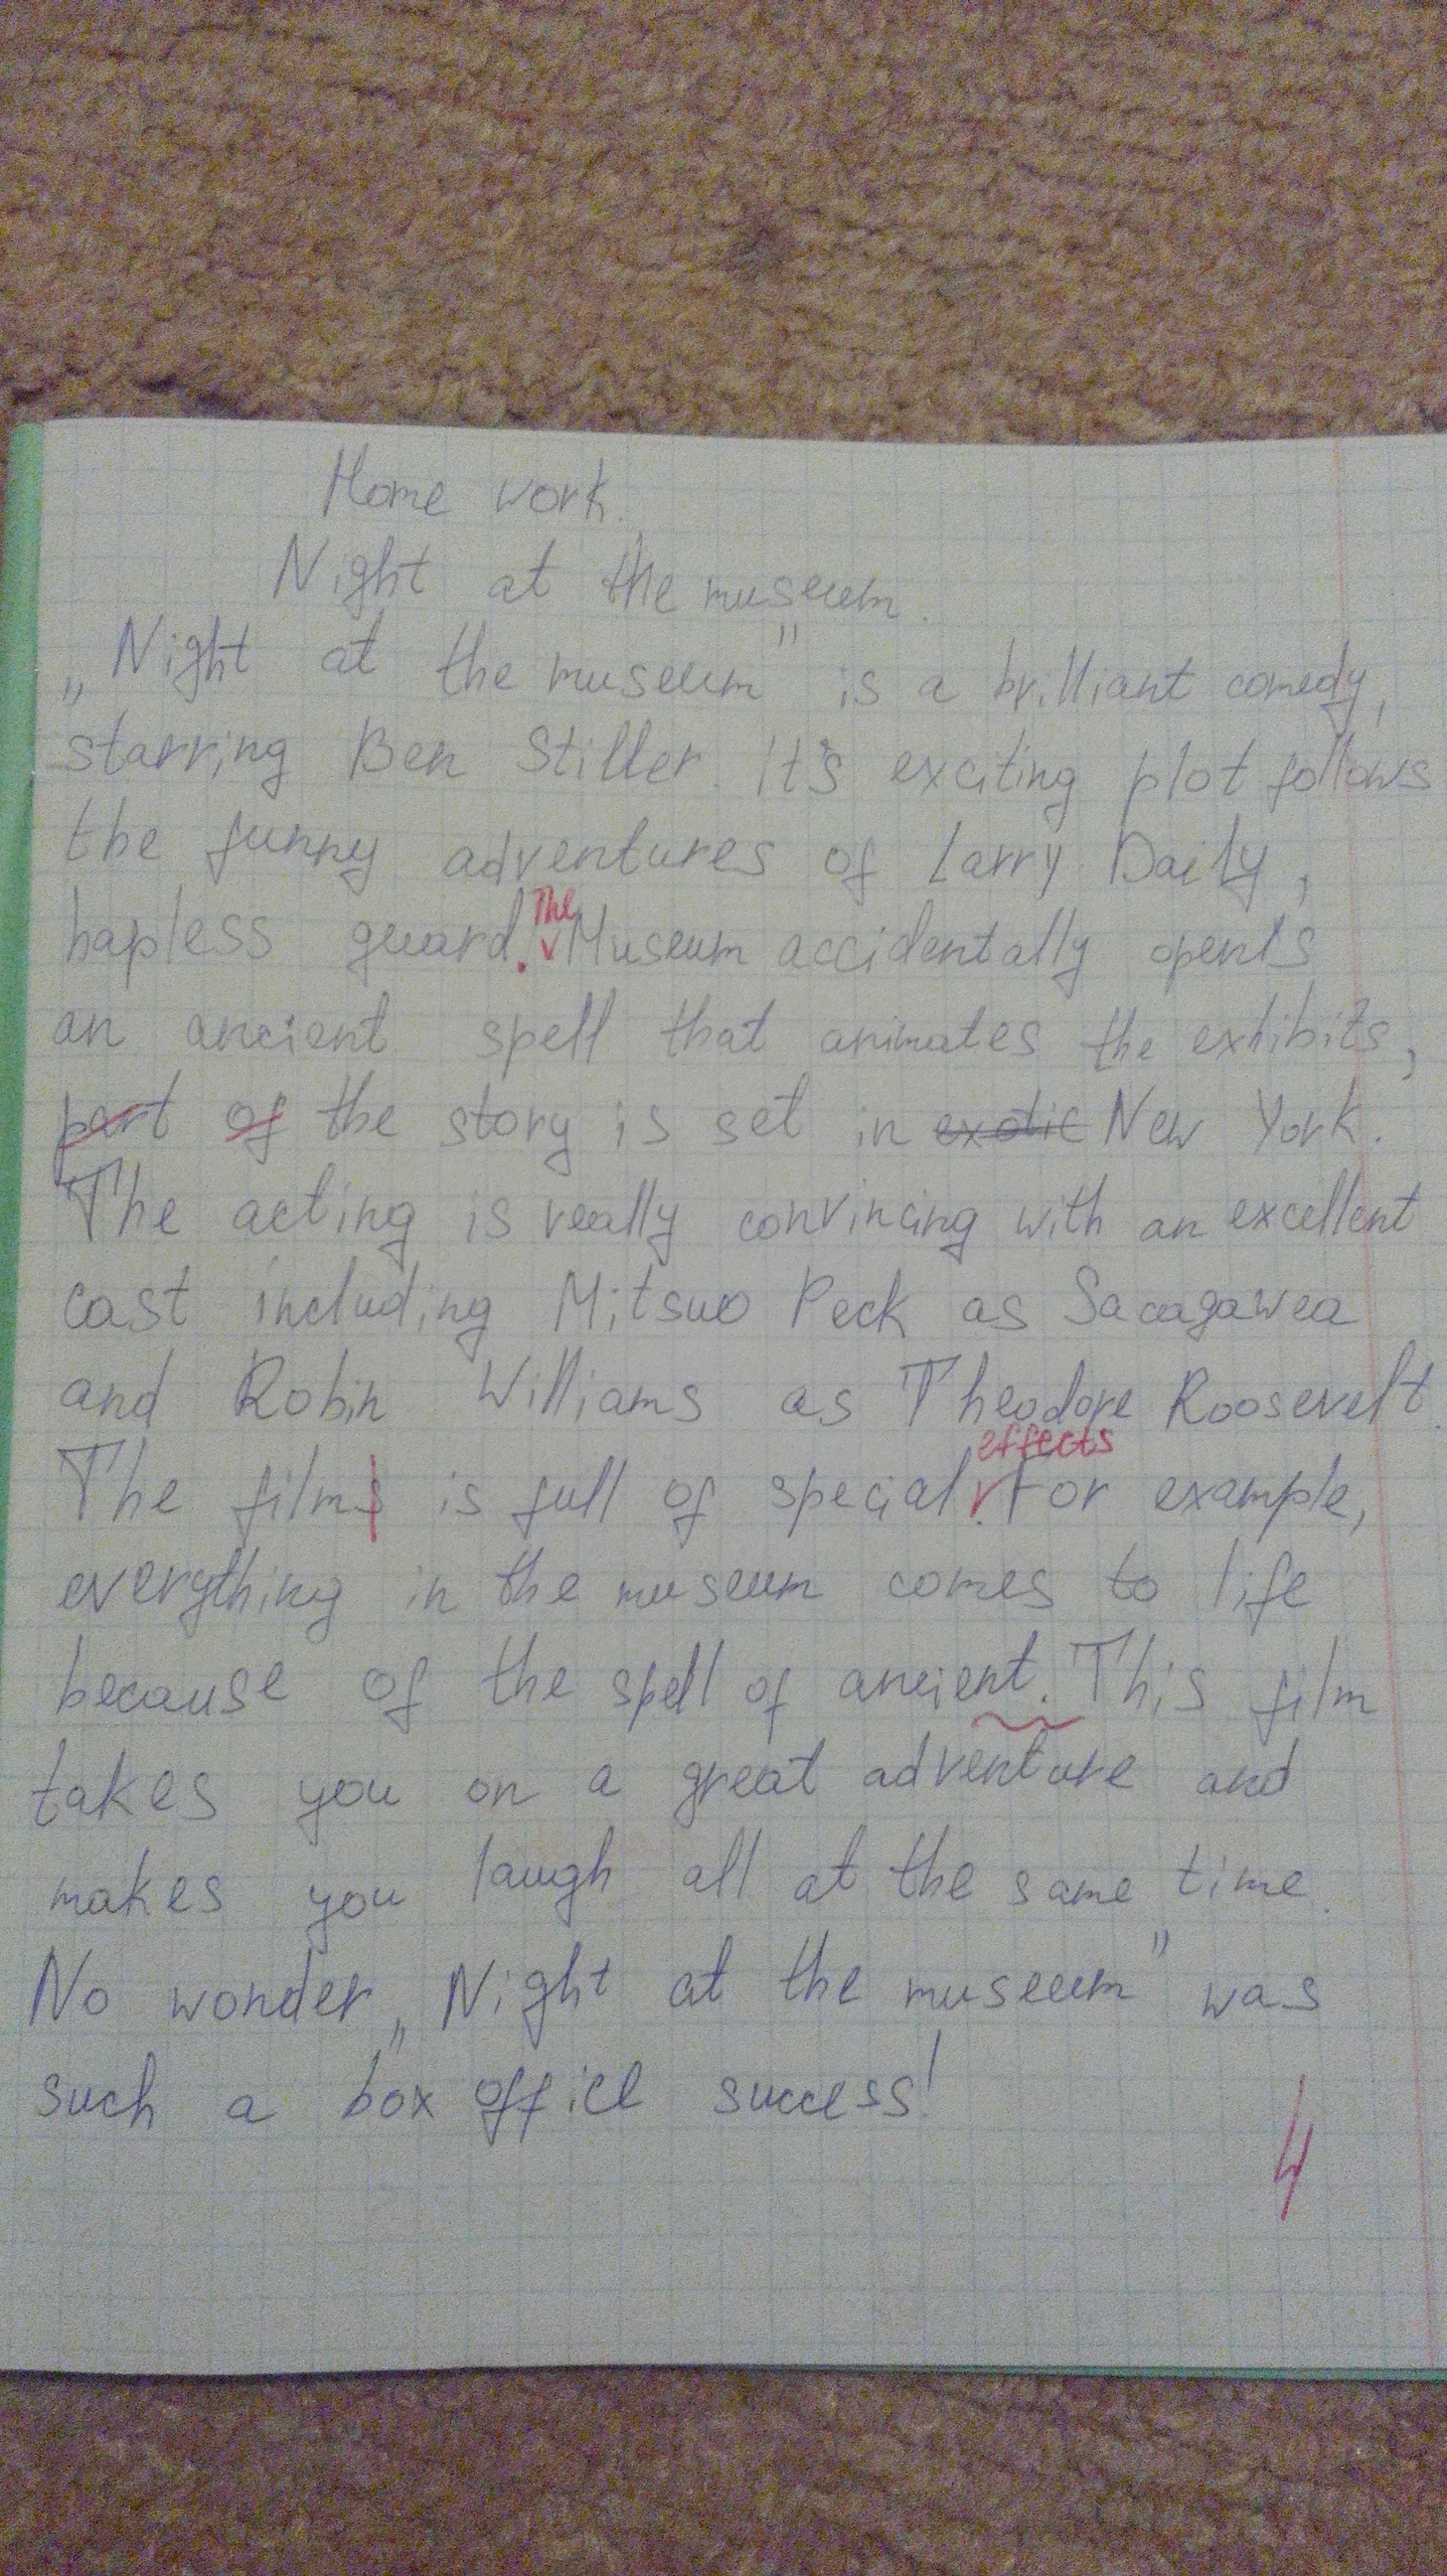 Home work.
Night at the museum.
„Night at the museum" is a brilliant comedy,
starring Ben Stiller. It's exciting plot follows
the funny adventures of Larry Daily,
hapless guard. The Museum accidentally opens
an ancient spell that animates the exhibits,
part of the story is set in exotic New York.
The acting is really convincing with an excellent
cast including Mitsuo Peck as Sacagawea
and Robin Williams as Theodore Roosevelt.
effects
The films is full of special. For example,
everything in the museum comes to life
because of the spell of ancient. This film
takes you on a great adventure and
makes you laugh all at the same time.
No wonder „Night at the museum" was
such a box office success!
4